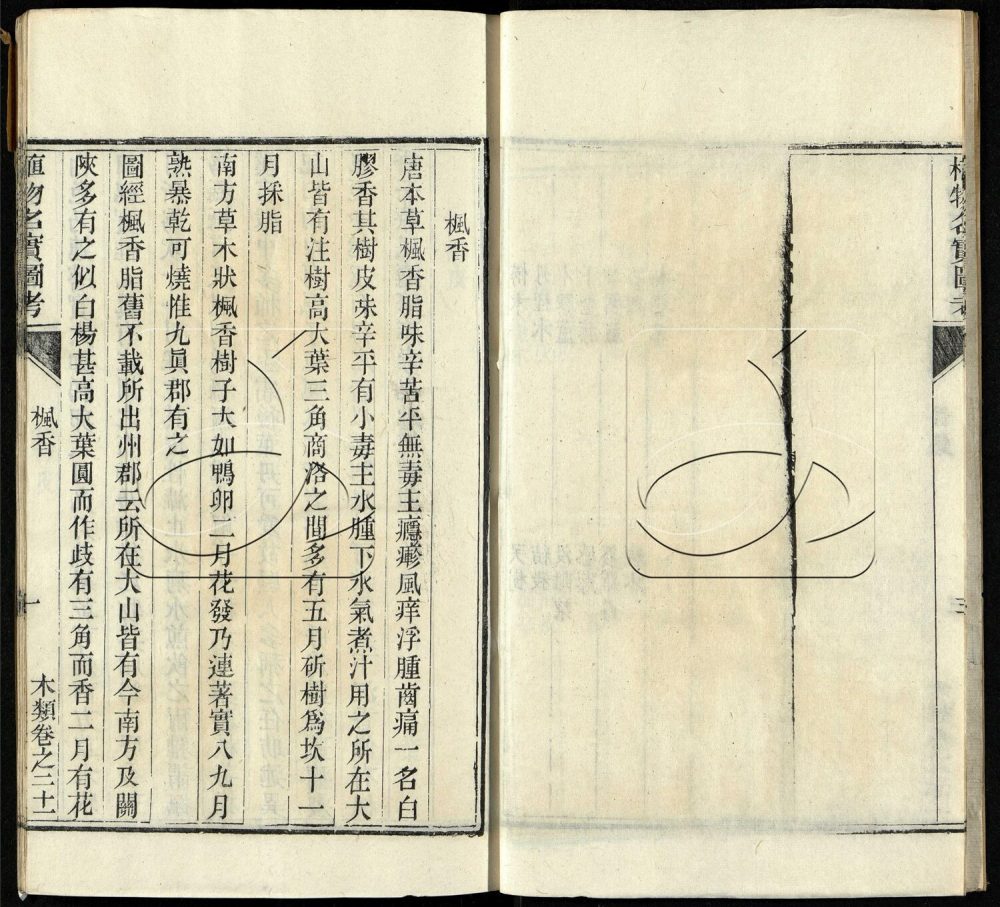 植物名實圖考
三
楓香
唐本草楓香脂味辛苦平無毒主癮𤺋風痒浮腫齒痛一名白
膠香其樹皮味辛平有小毒主水腫下水氣煮汁用之所在大
山皆有注樹高大葉三角商洛之間多有五月斫樹爲坎十一
月採脂
南方草木狀楓香樹子大如鴨卵二月花發乃連著實八九月
熟暴乾可燒惟九眞郡有之
圖經楓香脂舊不載所出州郡云所在大山皆有今南方及關
陜多有之似白楊甚高大葉圓而作歧有三角而香二月有花
植物名實圖考
楓香
一
木類卷之三十